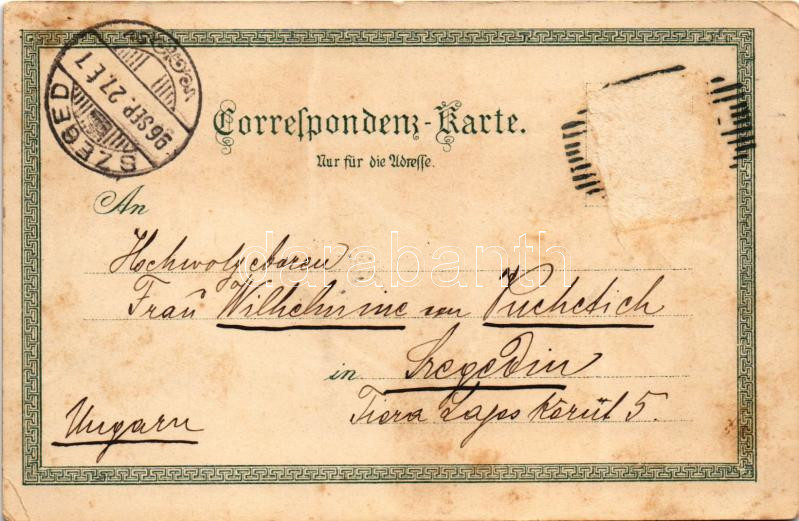 SZEGED
96 SEP. 27. E 7
Correspondenz-Karte.
Nur für die Adresse.
An
Hochwolgeboren
Frau Wilhelmine von Puchetich
in Szegedin
Tisza Lajos Körút 5.
Ungarn
darabanth